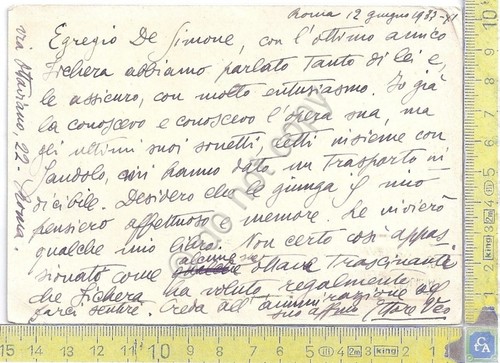 Roma 12 giugno 1933-XI
Egregio De Simone, con l'ottimo amico
Fichera abbiamo parlato tanto di lei e,
le assicuro, con molto entusiasmo. Io già
la conoscevo e conoscevo l'opera sua, ma
gli ultimi suoi sonetti, letti insieme con
Sandolo, mi hanno dato un trasporto in
dicibile. Desidero che le giunga il mio
pensiero affettuoso, memore. Le invierò
qualche mio libro. Non certo così appas
sionato come alcune sue ottave trascinanti
che Fichera ha voluto regalmente
farci sentire. Creda all'ammirazione del
suo aff.mo
via Ottaviano, 22 - Roma.
do not copy